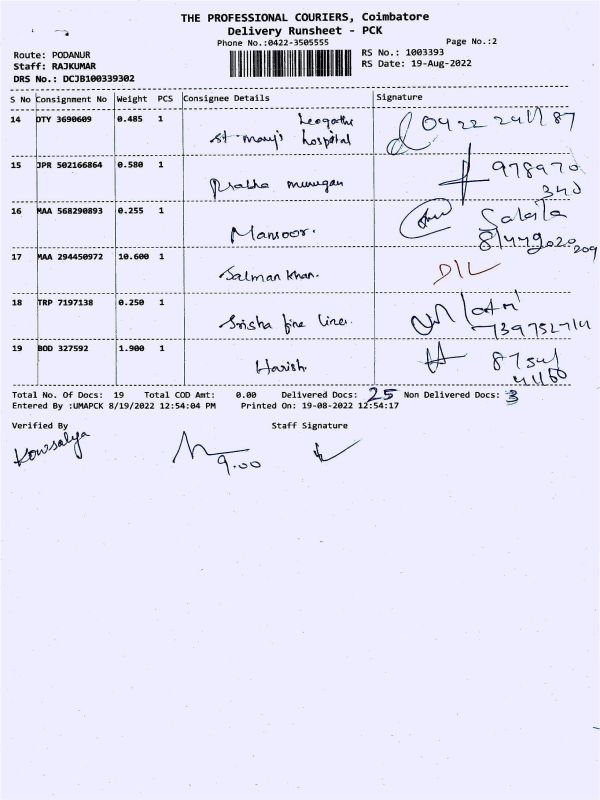 THE PROFESSIONAL COURIERS, Coimbatore
Delivery Runsheet - PCK
Phone No.:0422-3505555
Page No.:2
Route: PODANUR
RS No.: 1003393
Staff: RAJKUMAR
RS Date: 19-Aug-2022
DRS No.: DCJB100339302
S No Consignment No Weight PCS Consignee Details Signature
14 DTY 3690609 0.485 1
St mary's hospital
0422
15 JPR 502166864 0.580 1
Prabha murugan
978970
340
16 MAA 568290893 0.255 1
Mansoor.
17 MAA 294450972 10.600 1
Salman Khan.
D/L
18 TRP 7197138 0.250 1
Srisha fine
19 BOD 327592 1.900 1
Harish
Total No. Of Docs: 19 Total COD Amt: 0.00 Delivered Docs: 25 Non Delivered Docs: 3
Entered By :UMAPCK 8/19/2022 12:54:04 PM Printed On: 19-08-2022 12:54:17
Verified By Staff Signature
Kowsalya
9.00